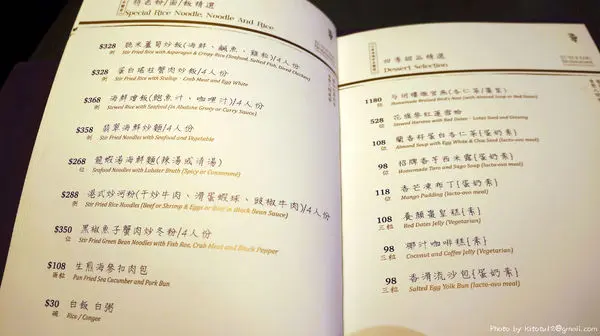 特色粉/面/飯精選
Special Rice Noodle, Noodle And Rice
$328 脆米蘆筍炒飯(海鮮、鹹魚、雞粒)/4人份
例 Stir Fried Rice with Asparagus & Crispy Rice (Seafood, Salted Fish, Diced Chicken)
$328 蛋白瑤柱蟹肉炒飯/4人份
例 Stir Fried Rice with Scallop、Crab Meat and Egg White
$368 海鮮燴飯(鮑魚汁、咖哩汁)/4人份
例 Stewed Rice with Seafood (in Abalone Gravy or Curry Sauce)
$358 翡翠海鮮炒麵/4人份
例 Stir Fried Noodles with Seafood and Vegetable
$268 龍蝦湯海鮮麵(辣湯或清湯)
位 Seafood Noodles with Lobster Broth (Spicy or Consommé)
$288 港式炒河粉(干炒牛肉、滑蛋蝦球、豉椒牛肉)/4人份
例 Stir Fried Rice Noodles (Beef or Shrimp & Eggs or Beef in Black Bean Sauce)
$350 黑椒魚子蟹肉炒冬粉/4人份
位 Stir Fried Green Bean Noodles with Fish Roe, Crab Meat and Black Pepper
$108 生煎海參扣肉包
兩粒 Pan Fried Sea Cucumber and Pork Bun
$30 白飯 白粥
碗 Rice / Congee
四季甜品精選
Dessert Selection
1180
位 Homemade Braised Bird's Nest (with Almond Soup or Red Dates)
528
位
108 蘭香籽蛋白杏仁茶{蛋奶素}
位 Almond Soup with Egg White & Chia Seed (lacto-ovo meal)
98 招牌香芋西米露{蛋奶素}
位 Homemade Taro and Sago Soup (lacto-ovo meal)
118 香芒凍布丁{蛋奶素}
位 Mango Pudding (lacto-ovo meal)
108 養顏棗皇糕{素}
三粒 Red Dates Jelly (Vegetarian)
98 椰汁咖啡糕{素}
三粒 Coconut and Coffee Jelly (Vegetarian)
98 香滑流沙包{蛋奶素}
三粒 Salted Egg Yolk Bun (lacto-ovo meal)
Photo by Kitotu12@gmail.com